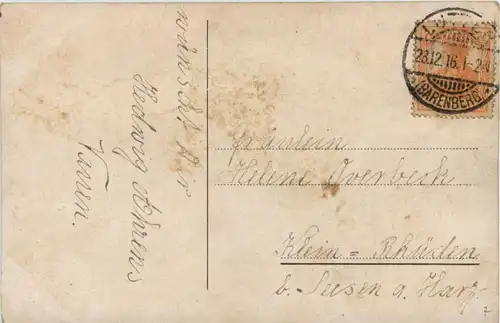 wünscht Dir
Hedwig Ahrens
LUTTER
28.12.16. 1-2 N
(BARENBERG)
Fräulein
Helene Overbeck
Klein-Rhüden
b. Seesen a. Harz.